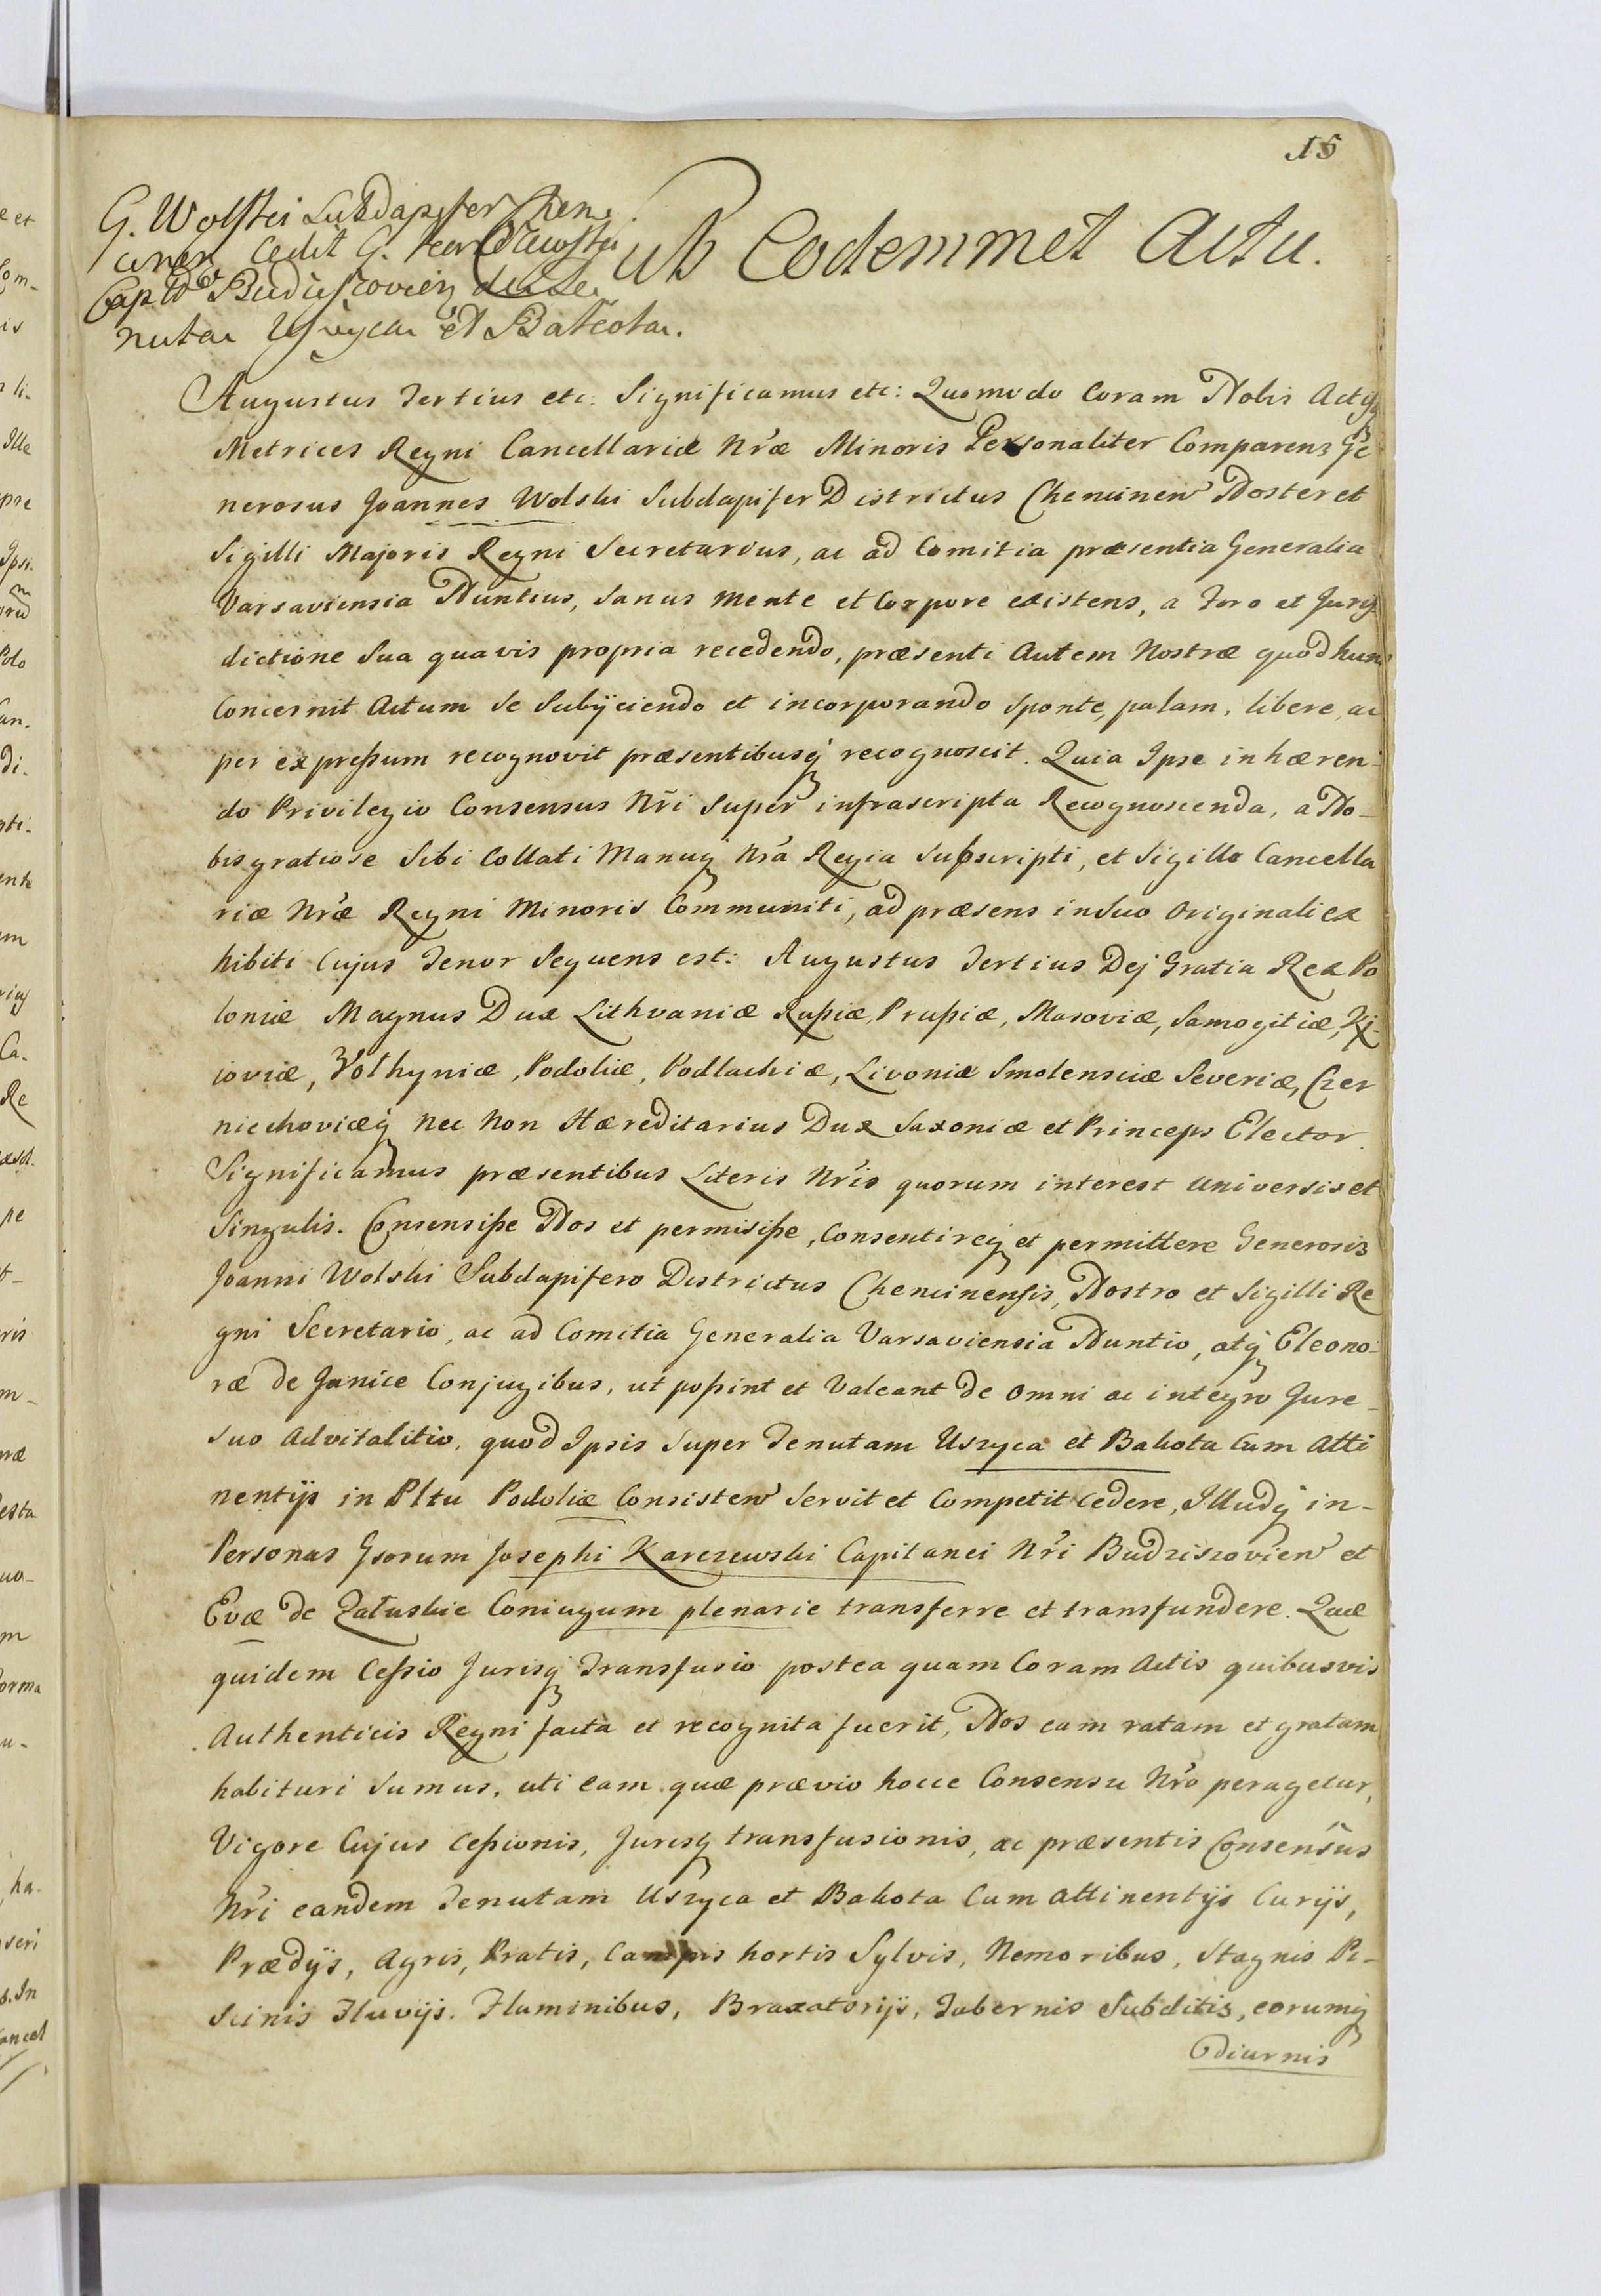 15
G. Wolski Subdapifer Chen
cinen cedit G. Karczewski
Capto Budziszovien de Te
nuta Uszyca et Bakota.
Sub Eodemmet Actu.
Augustus Tertius etc. Significamus etc: Quomodo Coram Nobis Actisq
Metrices Regni Cancellariæ Nræ Minoris Personaliter Comparens Ge
nerosus Joannes Wolski Subdapifer Districtus Chencinen Noster et
Sigilli Majoris Regni Secretarius, ac ad Comitia præsentia Generalia
Varsaviensia Nuntius, sanus mente et Corpore existens, a Foro et Juris
dictione Sua quavis propria recedendo, præsenti Autem Nostræ quod hunc
Concernit Actum Se Subijciendo et incorporando Sponte, palam, libere, ac
per expressum recognovit præsentibusq recognoscit. Quia Ipse inhæren-
do Privilegio Consensus Nri Super infrascripta Recognoscenda, a No-
bis gratiose Sibi Collati Manuq Nra Regia Subscripti, et Sigillo Cancella
riæ Nræ Regni Minoris Communiti, ad præsens in Suo Originali ex
hibiti Cujus Tenor Sequens est: Augustus Tertius Dej Gratia Rex Po
loniæ Magnus Dux Lithvaniæ Russiæ, Prussiæ, Masoviæ, Samogitiæ, Ki-
ioviæ, Volhyniæ, Podoliæ, Podlachiæ, Livoniæ Smolensciæ Severiæ, Czer
niechoviæq Nec Non Hæreditarius Dux Saxoniæ et Princeps Elector.
Significamus præsentibus Literis Nris quorum interest universis et
Singulis. Consensisse Nos et permisisse, Consentireq et permittere Generosis
Joanni Wolski Subdapifero Districtus Chencinensis, Nostro et Sigilli Re
gni Secretario, ac ad Comitia Generalia Varsaviensia Nuntio, atq Eleono-
ræ de Janice Conjugibus, ut possint et Valeant de Omni ac integro Jure
Suo Advitalitio, quod Ipsis Super Tenutam Uszyca et Bakota Cum Atti
nentijs in Pltu Podoliæ Consisten Servit et Competit Cedere, Illudq in-
Personas Gsorum Josephi Karczewski Capitanei Nri Budziszovien et
Evæ de Załuskie Coniugum plenarie transferre et transfundere. Quæ
quidem Cessio Jurisq Transfusio postea quam Coram Actis quibusvis
Authenticis Regni facta et recognita fuerit, Nos eam ratam et gratam
habituri Sumus, uti eam quæ prævio hocce Consensu Nro peragetur,
Vigore Cujus Cessionis, Jurisq transfusionis, ac præsentis Consensûs
Nri eandem Tenutam Uszyca et Bakota Cum attinentijs Curijs,
Prædijs, Agris, Pratis, Campis hortis Sylvis, Nemoribus, Stagnis Pi-
scinis Fluvijs. Fluminibus, Braxatorijs, Tabernis Subditis, eorumq
Diurnis